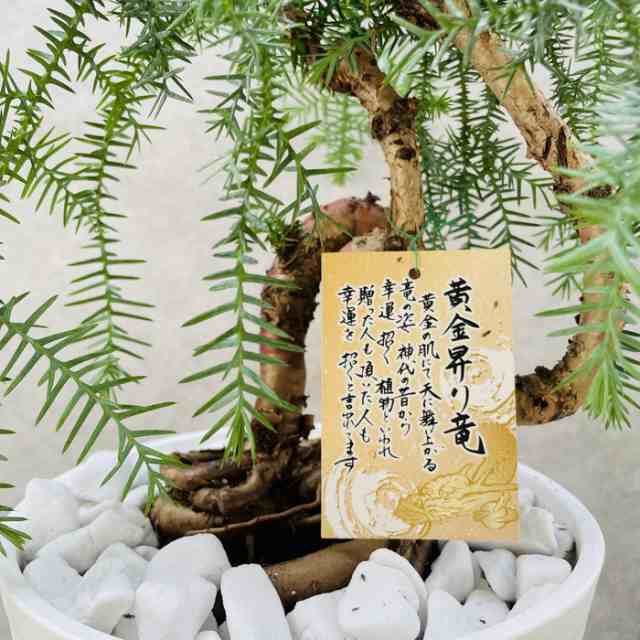 黄金昇り竜
黄金の肌して天に舞上がる
竜の姿 神代の昔から
幸運招く植物といわれ
贈った人も頂いた人も
幸運を招くと言れてます